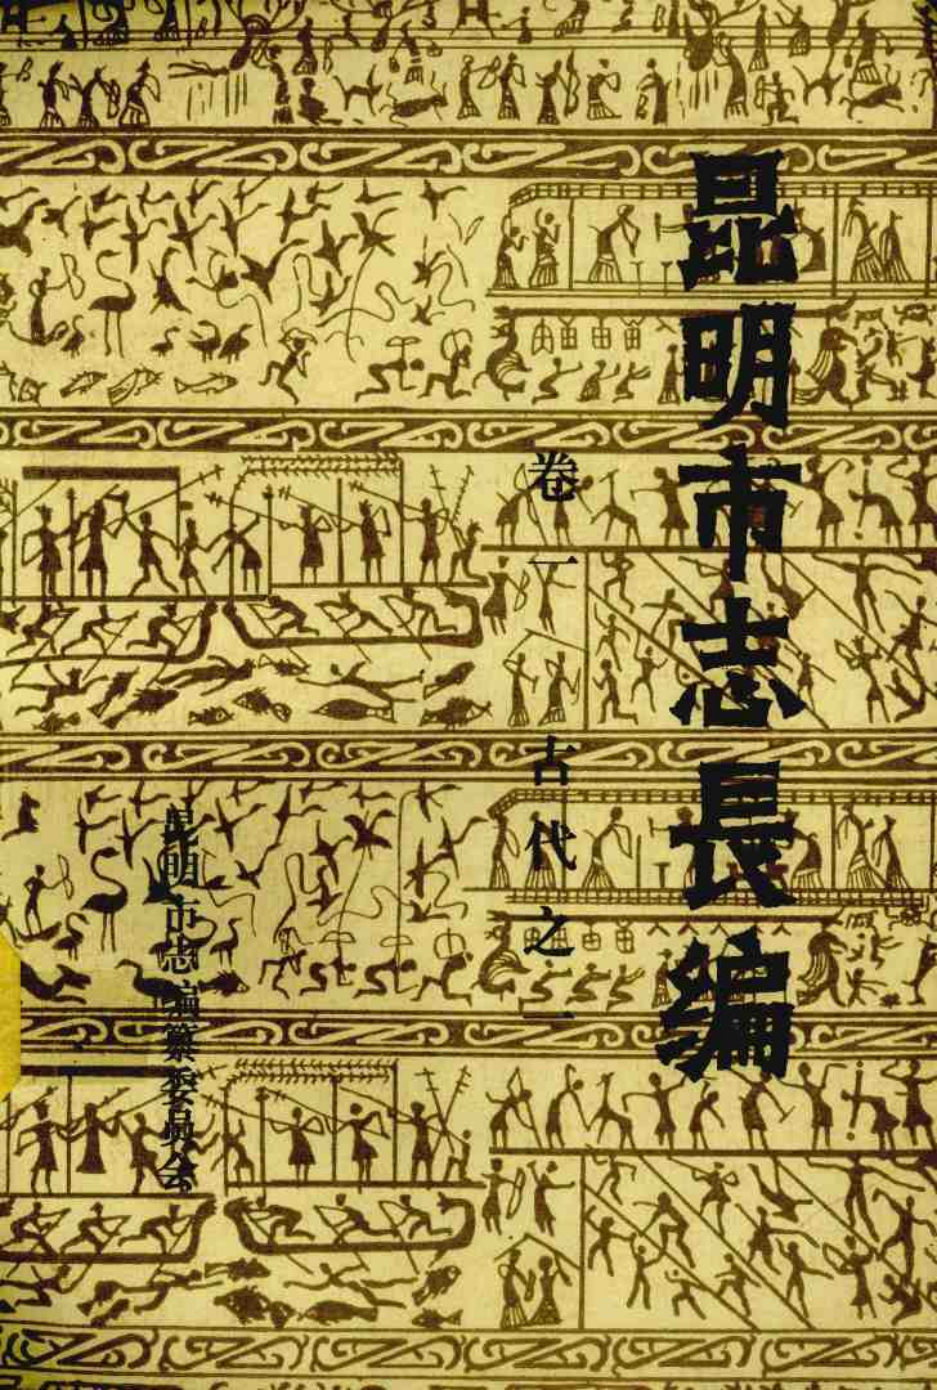 昆明市志長编
卷一
古代之一
昆明市志编纂委員会